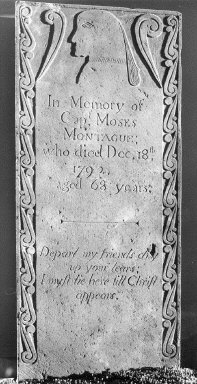 In Memory of
Capt Moses
MONTAGUE;
who died Dec, 18th,
1792,
aged 68 years;
Depart my friends dry
up your tears;
I must lie here till Christ
appears.